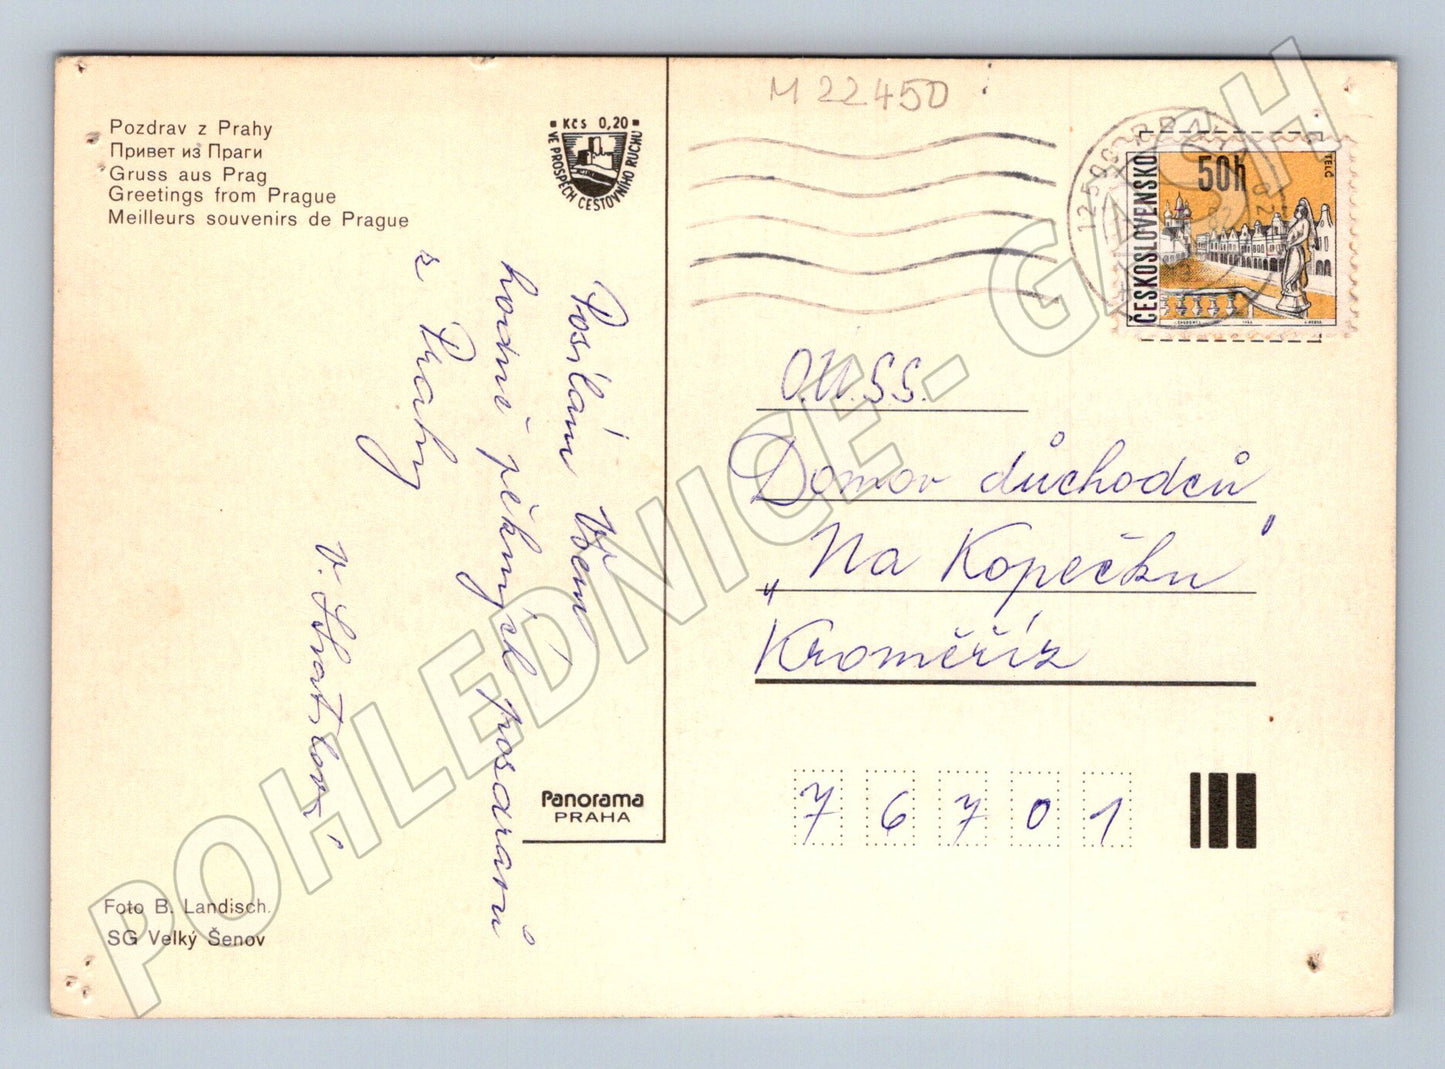 M 22450
Pozdrav z Prahy
Привет из Праги
Gruss aus Prag
Greetings from Prague
Meilleurs souvenirs de Prague
Kčs 0,20
VE PROSPĚCH CESTOVNÍHO RUCHU
Posílám Všem
hodně pěkných pozdravů
z Prahy
ČESKOSLOVENSKO
50h
TELČ
O.Ú.S.S.
Domov důchodců
„Na Kopečku"
Kroměříž
76701
Panorama
PRAHA
Foto B. Landisch.
SG Velký Šenov
POHLEDNICE - GASH